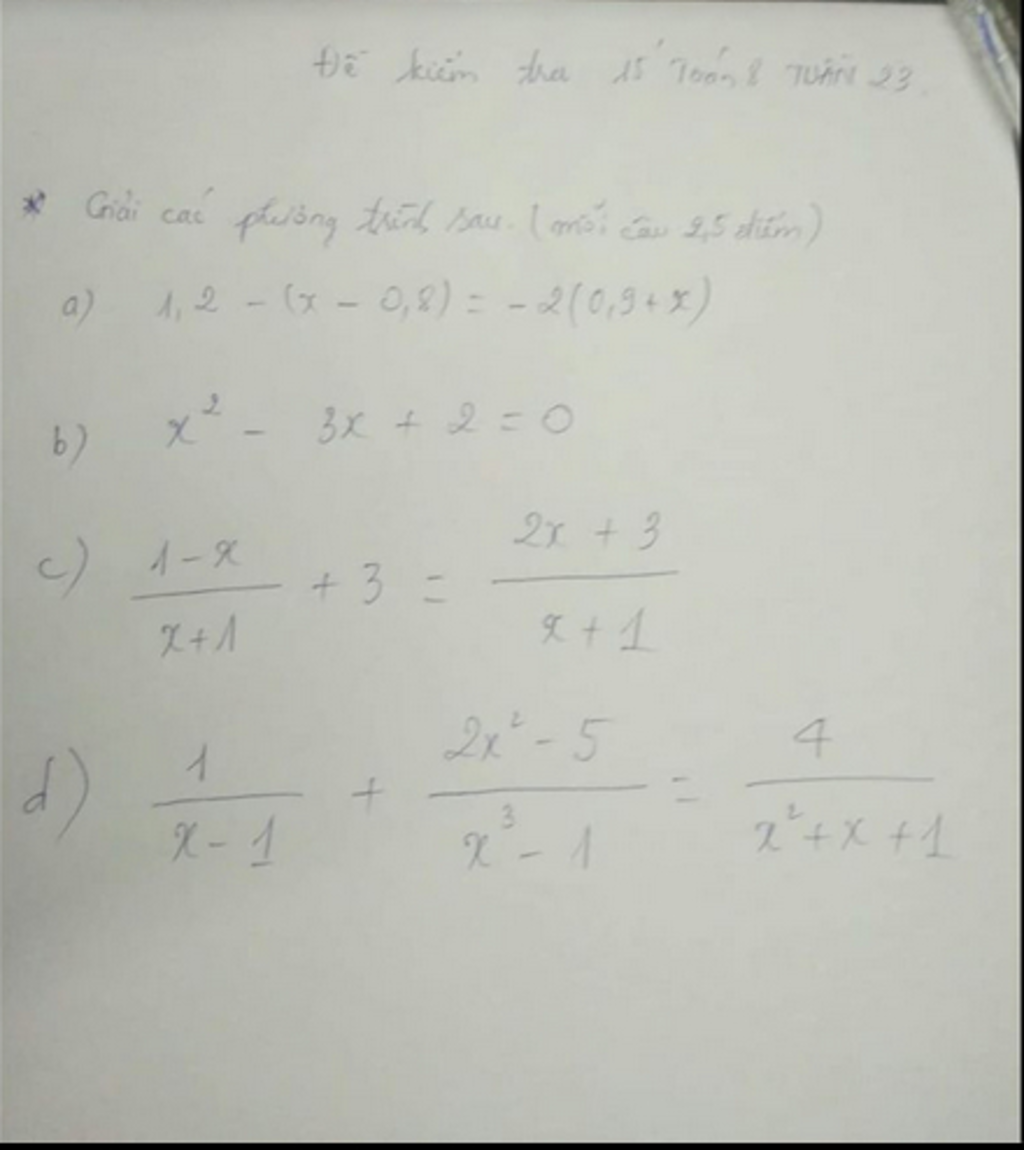 Đề kiểm tra 15' Toán 8 TUẦN 23.
* Giải các phương trình sau. (mỗi câu 2,5 điểm)
a) 1,2 - (x - 0,8) = -2(0,9 + x)
b) x² - 3x + 2 = 0
c) \frac{1-x}{x+1} + 3 = \frac{2x+3}{x+1}
d) \frac{1}{x-1} + \frac{2x²-5}{x³-1} = \frac{4}{x²+x+1}